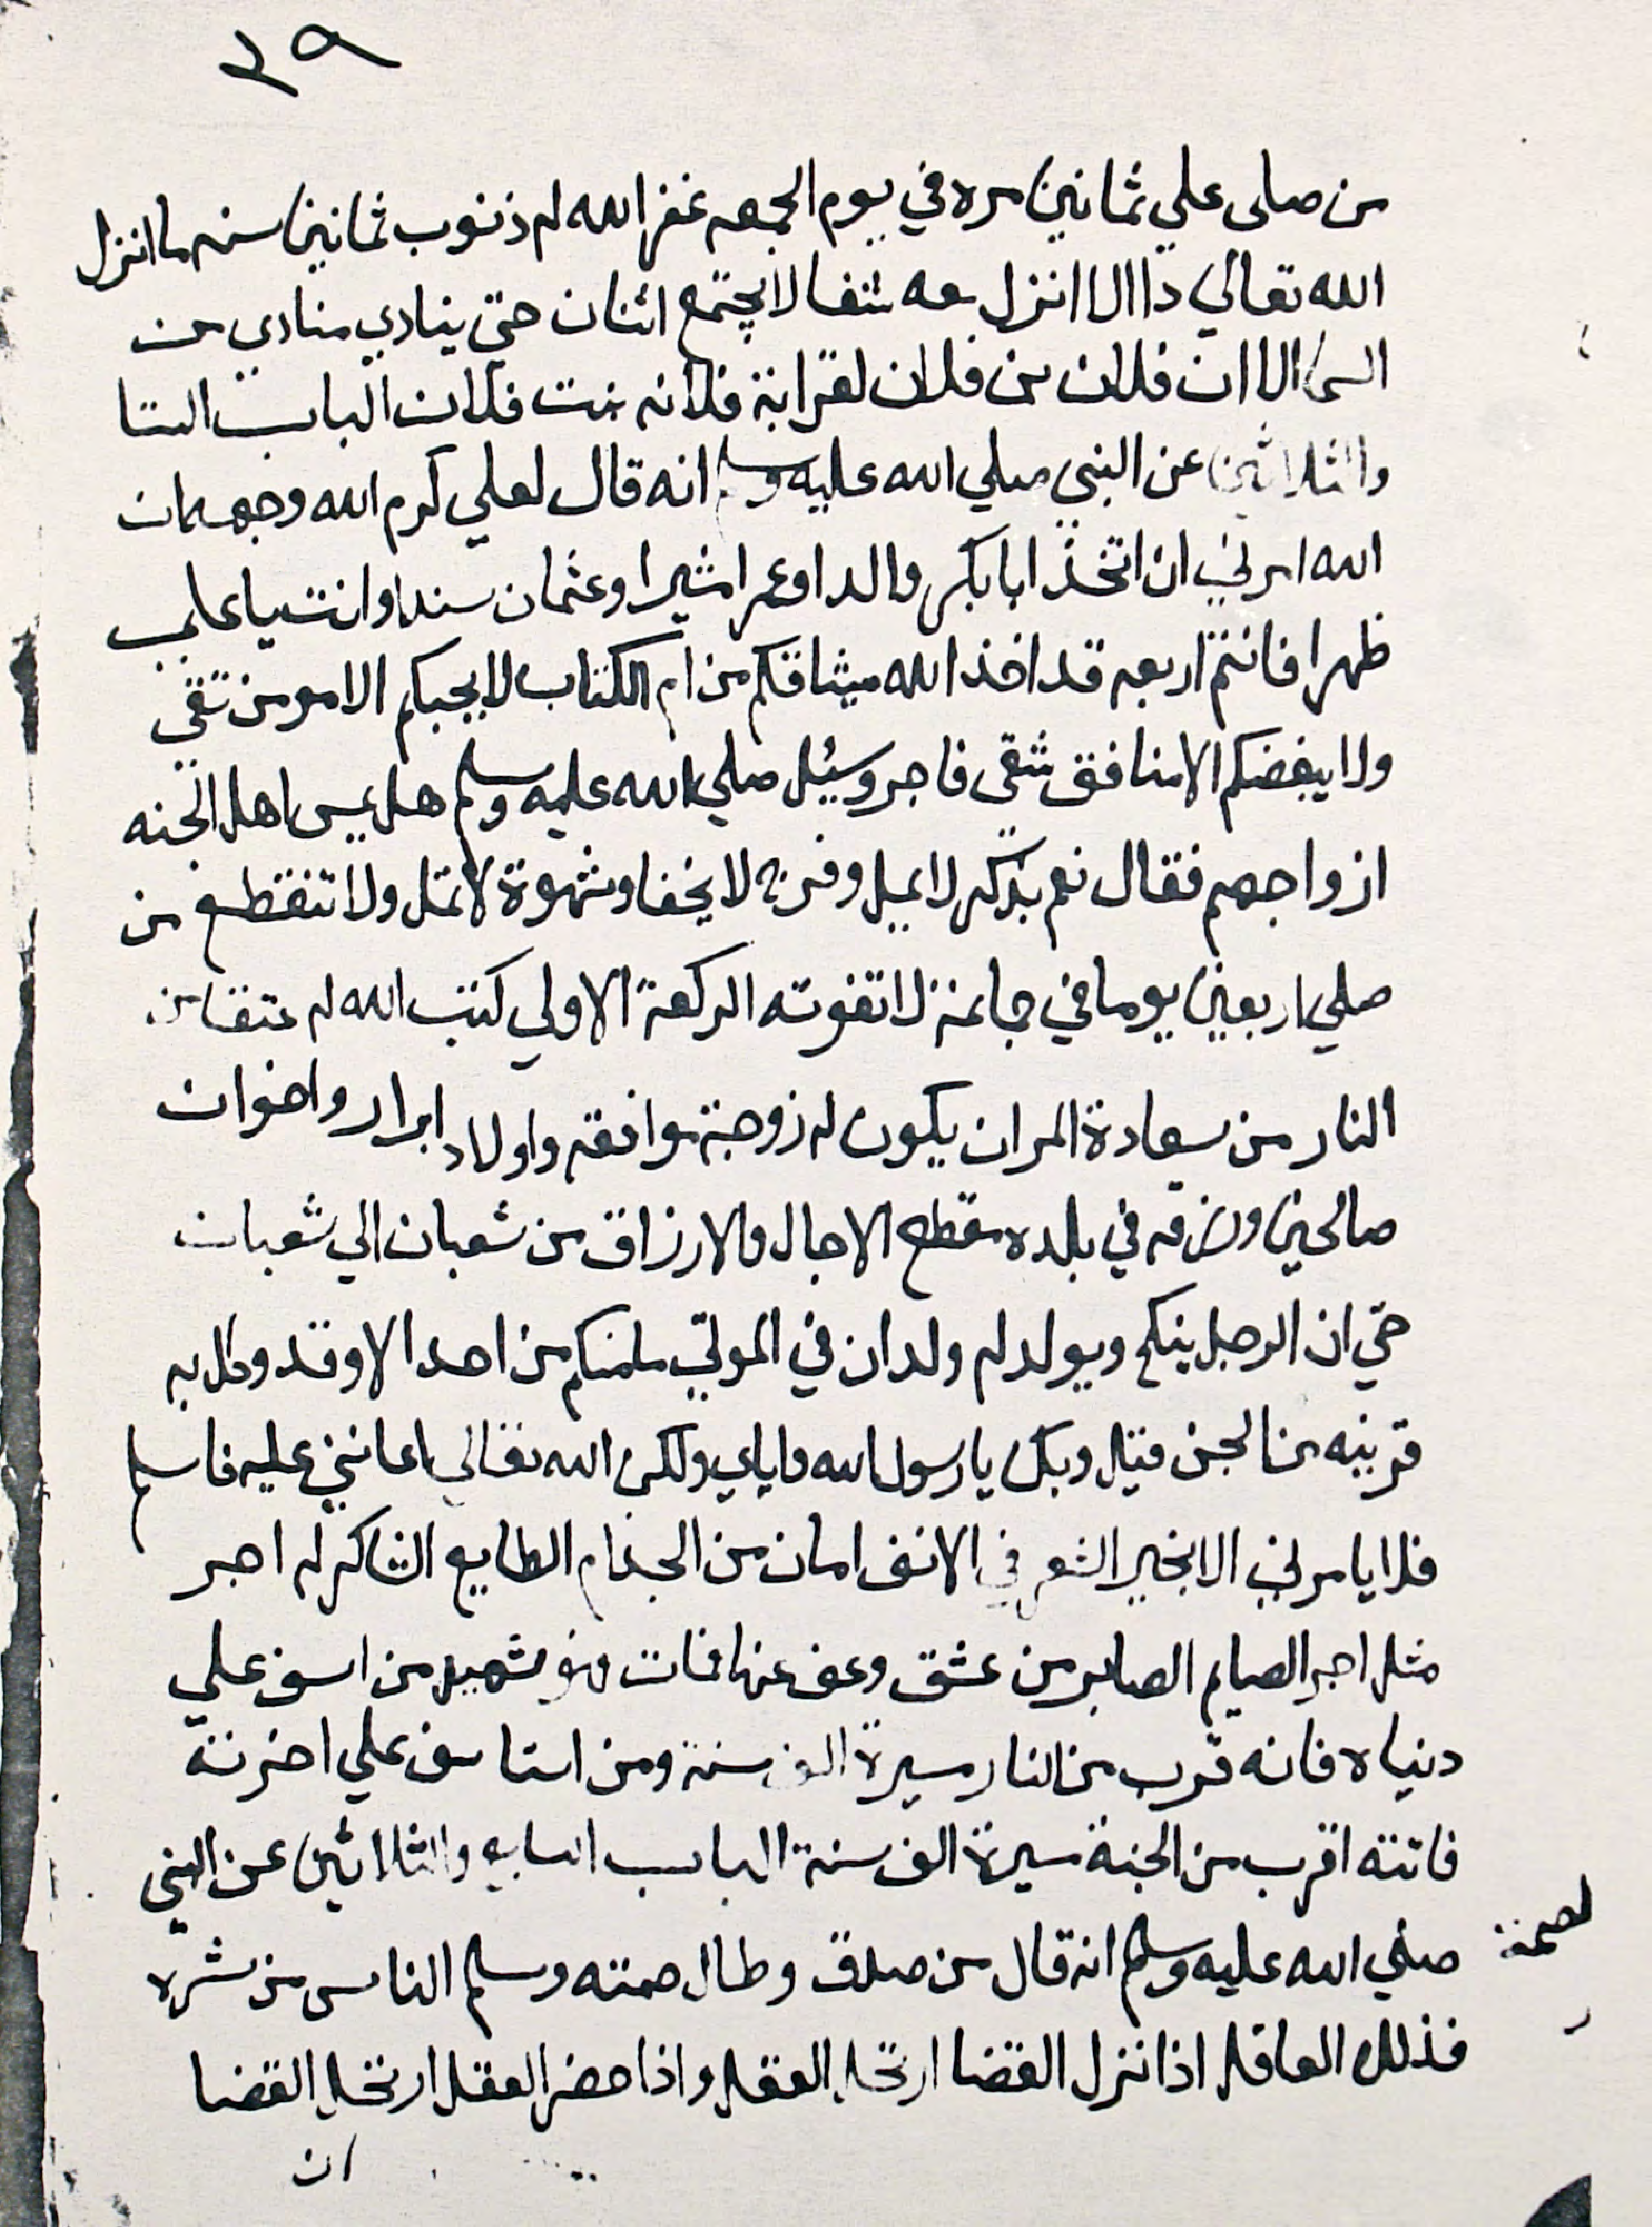 ٣٩
من صلى علي ثمانين مره في يوم الجمعه غفر الله له ذنوب ثمانين سنه ما انزل
الله تعالي داا الا انزل معه شفا لا يجتمع اثنان حتي ينادي منادي من
السما الا ان فلان بن فلان لقرابة فلانه بنت فلان الباب السا
والثلاثين عن النبى صلي الله عليه وسلم انه قال لعلي كرم الله وجهه ان
الله امرني ان اتخذ ابا بكر والدا وعمر مشيرا وعثمان سندا وانت يا علي
ظهرا فانتم اربعه قد اخذ الله ميثاقكم من ام الكتاب لا يحبكم الا مومن تقي
ولا يبغضكم الا منافق شقى فاجر وسيئل صلي الله عليه وسلم هل يمس اهل الجنه
ازواجهم فقال نعم بذكر لا يميل وفرج لا يخفا وشهوة لا تمل ولا تنقطع من
صلي اربعين يوما في جماعة لا تفوته الركعة الاولي كتب الله له عتقا من
النار من سعادة المر ان يكون له زوجة موافقه واولاد ابرار واخوان
صالحين ورزقه في بلده مقطع الاجال والارزاق من شعبان الي شعبان
حتي ان الرجل ينكح ويولد له ولد ان في الموتي ما منكم من احد الا وقد وكل به
قرينه من الجن قيل وبك يا رسول الله واياي ولكن الله تعالي اعانني عليه فاسلم
فلا يامرني الا بخير الشعر في الانف امان من الجذام الطايع الشاكر له اجر
مثل اجر الصيام الصابر من عشق وعف عنها فمات فهو شهيد من اسف علي
دنياه فانه قرب من النار مسيرة الف سنة ومن استاسف علي اخرته
فاتته اقرب من الجنة مسيرة الف سنة الباب السابع والثلاثين عن النبى
صلي الله عليه وسلم انه قال من صدق وطال صمته وسلم الناس من شره
فذلك العاقل اذا نزل القضا ارتحل العقل واذا حضر العقل ارتحل القضا
ان